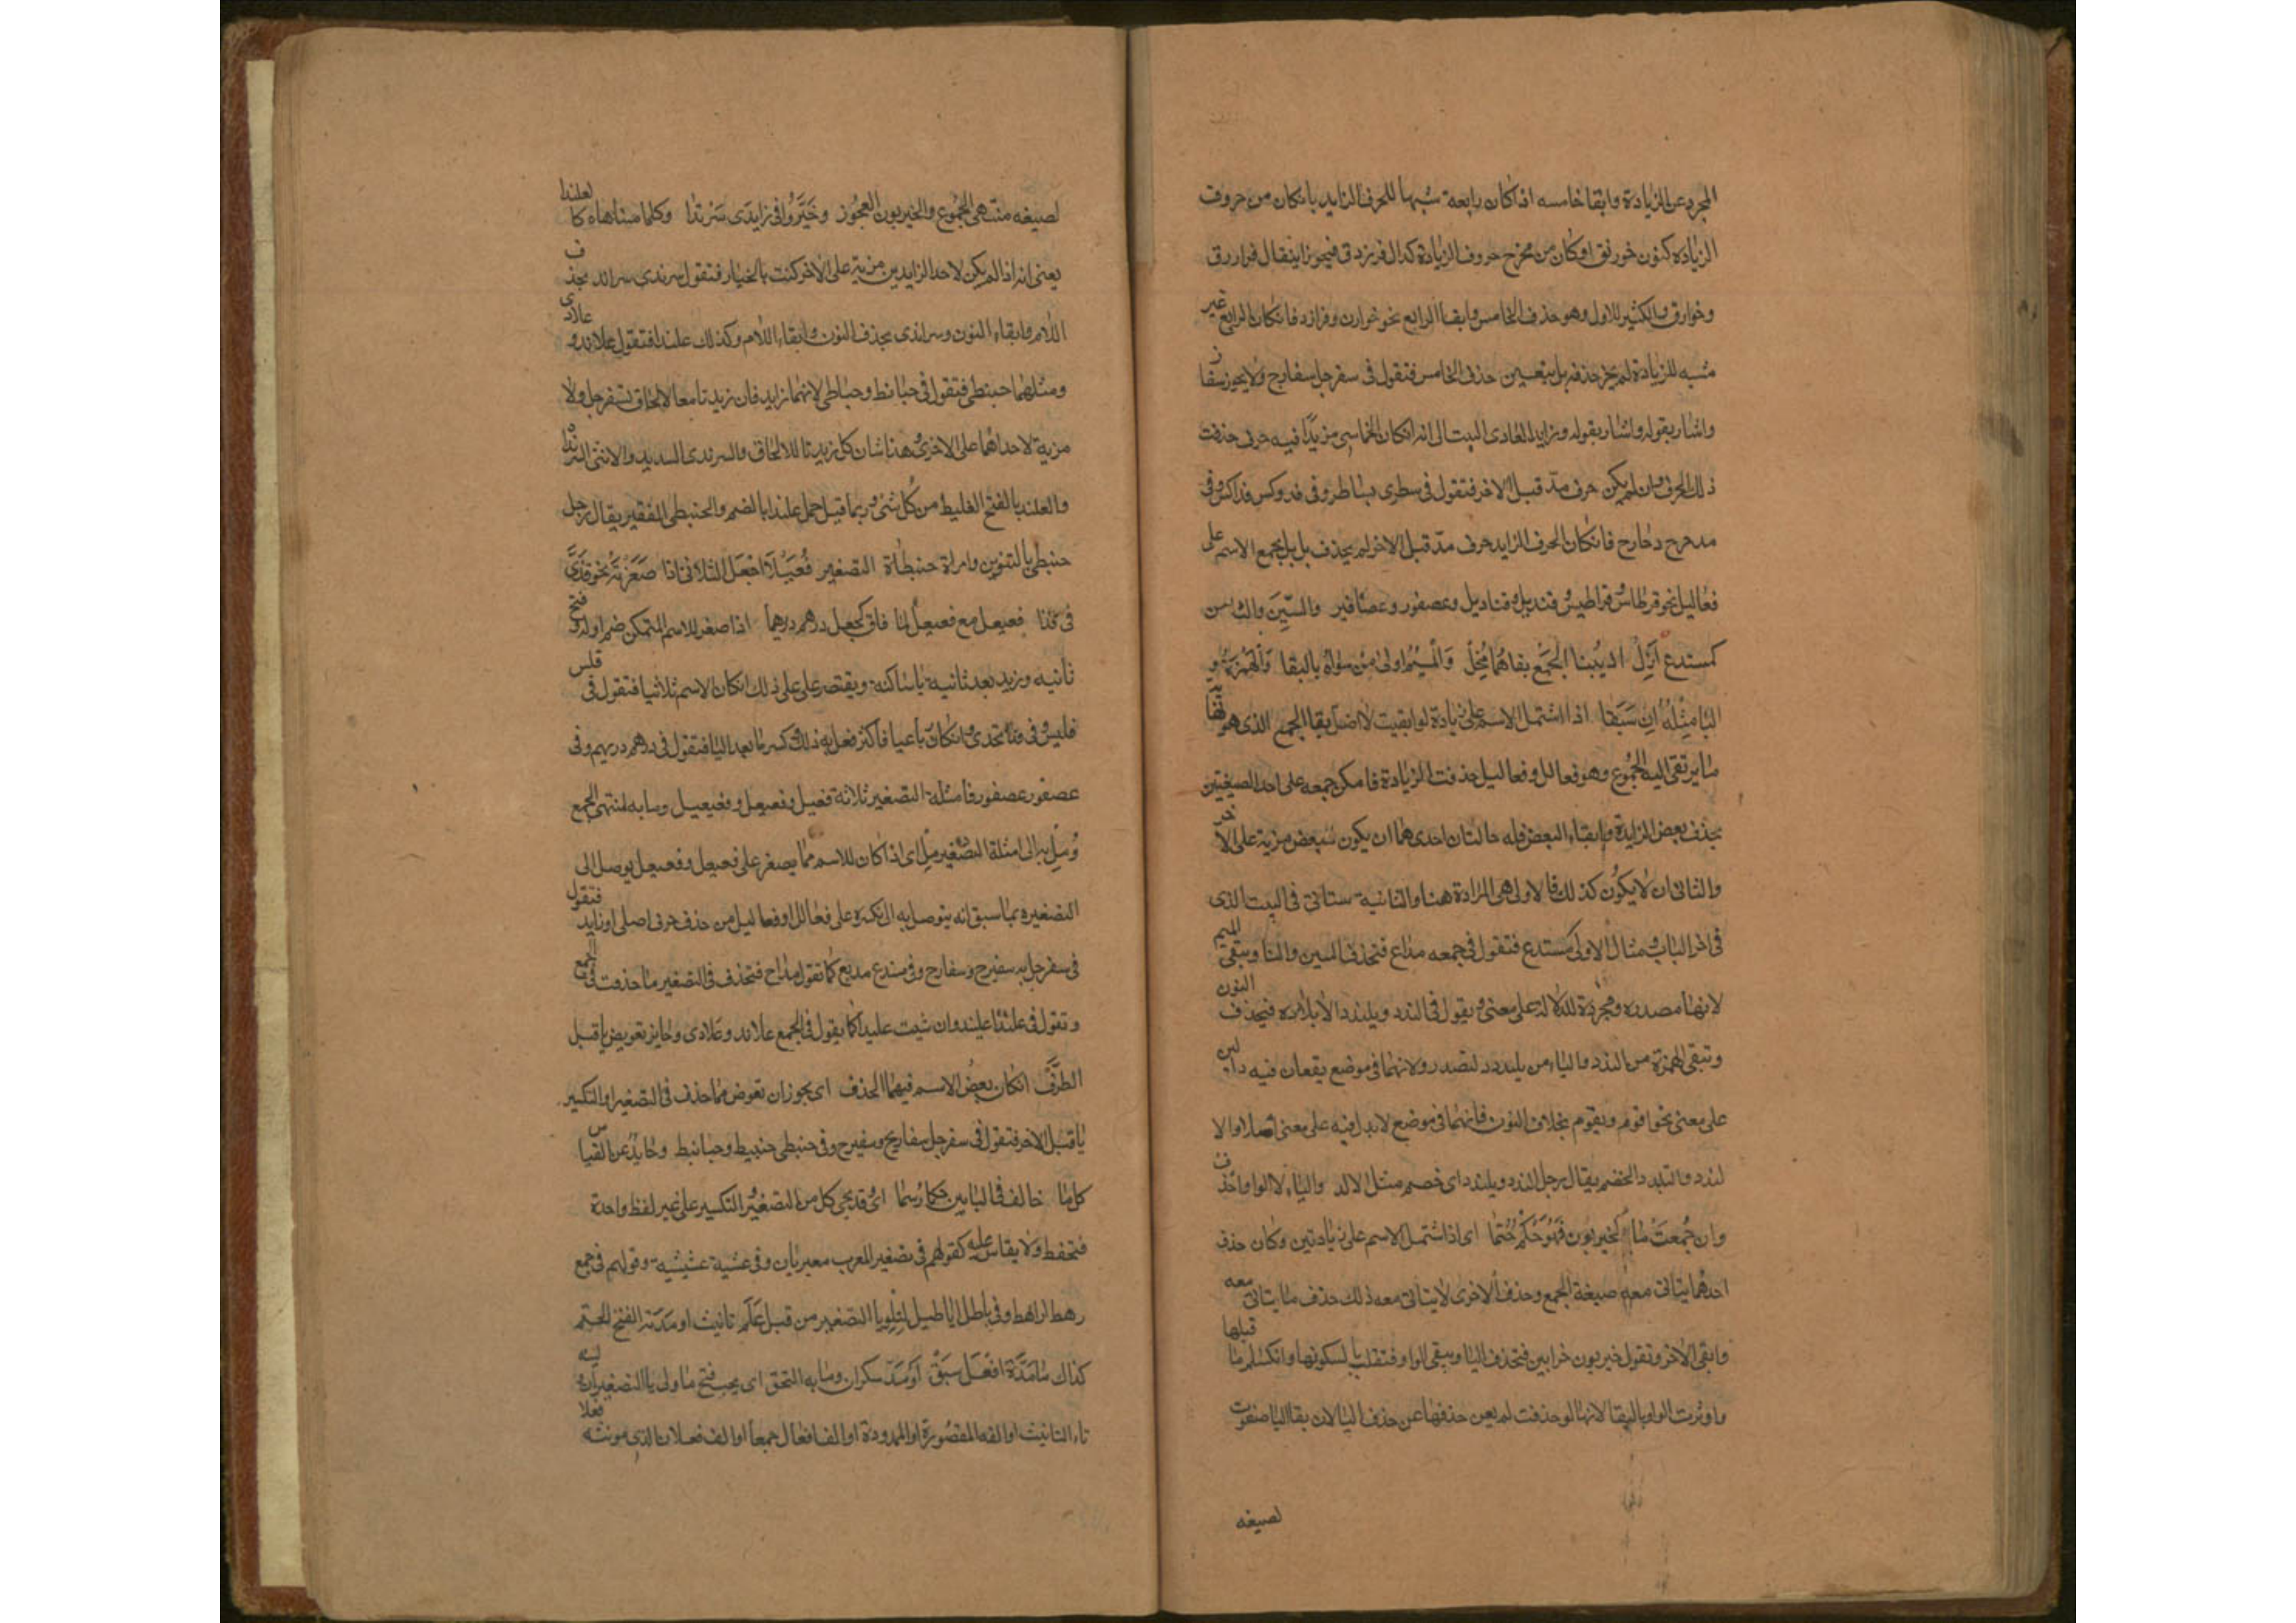 المجرد عن الزيادة وابقا خامسه اذا كان رابعه شبيها للحرف الزايد بان كان من حروف
الزياده كنون خورنق او كان من مخرج حروف الزيادة كدال فرزدق فيجوز ان يقال فرارق
وخوارق والكثير للاول وهو حذف الخامس وابقا الرابع نحو خوارن وفرازد فان كان الرابع غير
مشبه للزيادة لم يجز حذفه بل يتعين حذف الخامس فتقول في سفرجل سفارج ولا يجوز سفار
واشار بقوله واشار بقوله وزايد العادى البيت الى انه ان كان الخماسى مزيدا فيه حرف حذفت
ذلك الحرف ان لم يكن حرف مد قبل الاخر فتقول في سطرى سباطر وفى فدوكس فداكس وفى
مدحرج دحارج فان كان الحرف الزايد حرف مد قبل الاخر لم يحذف بل بل يجمع الاسم على
فعاليل نحو قرطاس قراطيس وقنديل وقناديل وعصفور وعصافير والسِّينَ والتا من
كمستدع اَزِلْ اذ بِبنا الجَمْع بقاهُما مُخِلّ وَالمِيْمُ اولى مِن سِواهُ بالبقا وَالهَمْزُ و
اليا مِثْلُهُ اِن سَبَقا اذا اشتمل الاسم على زيادة لو ابقيت لاختل بقا الجمع الذى هو
ما يرتقى اليه الجموع وهو فعالل وفعاليل حذفت الزيادة فان امكن جمعه على احد الصيغتين
بحذف بعض الزايدة وابقاء البعض فله حالتان احدى هما ان يكون لبعض مزية على الاخر
والثانى ان لا يكون كذلك فالاولى هى المرادة هنا والثانية ستاتى فى البيت الذى
فى اخر الباب ومثال الاولى مستدع فتقول فى جمعه مداع فتحذف السين والتا وتبقى الميم
لانها مصدره ومجردة للدلالة على معنى ويقول فى الندد ويلندد الاد يلاد فيحذف النون
وتبقى الهمزة من الندد والياء من يلندد لتصدر ولانهما فى موضع يقعان فيه دالين
على معنى نحو اقوم ويقوم بخلاف النون فانهما فى موضع لا يدل فيه على معنى اصلا والا
لندد والتلبد دالخصم يقال رجل الندد ويلندد اى خصم مثل الالد والياء لا الواو احذف
وان جُمِعَتْ مَا كخيزبون فَهُوَ حُكْم حُتِما اى اذا اشتمل الاسم على زيادتين وكان حذف
احدهما يتاتى معه صيغة الجمع وحذف الاخرى لا يتاتى معه ذلك حذف ما يتاتى معه
وابقى الاخر وتقول خيزبون خرابين فتحذف اليا ويبقى الواو فتقلب يا لسكونها وانكسار ما قبلها
واوثرت الواو بالبقا لانها لو حذفت لم يغن حذفها عن حذف اليا لان بقا اليا مفوت
لصيغه
لصيغه منتهى الجموع والخيزبون العجوز وخَيَّرُوا فى زايدَى سَرَنْدَا وكلما ضاهاه كالعلندا
يعنى انه اذا لم يكن لاحد الزايدين مزية على الاخر كنت بالخيار فتقول سرندى سراند بحذف
اللام وابقاء النون وسراندى بحذف النون وابقاء اللام وكذلك علندا فتقول علاند و علادى
ومثلهما حبنطى فتقول فى حبانط وحباطى لانهما زايد فان زيدتا معا لالحاق لسفرجل ولا
مزية لاحداهما على الاخرى وهذا شان كل زيدتا للالحاق والسرندى السديد والانثى
والعلندى بالفتح الغليظ من كل شئ وربما قيل جمل علندا بالضم والحنبطى الفقير يقال رجل
حنبطى بالتنوين وامراة حنبطاة التصغير فُعَيْلاً اجْعَل الثلاثى اذا صَغَّرْتَه نحو قُذَىّ
فى قذا فعيعل مع فعيعيل لما فاق كجعل درهم دريهما اذا صغر الاسم المتمكن ضم اوله وفتح
ثانيه وزيد بعد ثانيه يا ساكنة ويقتصر على على ذلك ان كان الاسم ثلاثيا فتقول فى فلس
فليس وفى قذا قذى وان كان رباعيا فاكثر فعل به ذلك وكسر ما بعد اليا فتقول فى درهم دريهم وفى
عصفور عصفور فامثلة التصغير ثلاثة فعيل وفعيعل وفعيعيل وما به لمنتهى الجمع
وُصِل به الى امثلة التصغير صِل اى اذا كان للاسم مما يصغر على فعيعل وفعيعيل يوصل الى
التصغيره بما سبق انه يتوصل به الى تكسيره على فعالل او فعاليل من حذف حرف اصلى او زايد فتقول
فى سفرجل به سفيرج وسفارج وفى مستدع مديع كما تقول مداح فتحذف فى التصغير ما حذفت فى الجمع
وتقول فى علندا عليند وان شيت عليدا كما يقول فى الجمع علاند وعلادى وجايز تعويض يا قبل
الطرَف ان كان بعضُ الاسم فيهما الحذف اى يجوز ان تعوض مما حذف فى التصغير او التكسير
يا قبل الاخر فتقول فى سفرجل سفاريج وسفيرج وفى حنبطى حنبيط وحبانيط وحايدٌ عن القياس
كل ما خالف فى البابين حكما رُسِما اى قد يجى كل من التصغير والتكسير على غير لفظ واحدة
فتحفظ ولا يقاس عليه كقولهم فى تصغير المغرب مغيربان وفى عشية عشيشية وقولهم فى جمع
رهط اراهط وفى باطل اباطيل لتِلْوِ يا التصغير من قبل عَلَم تانيث او مَدّته الفتح انحتم
كذاك مَا مَدّة افْعَال سَبَقْ اَوْ مَدّ سكران وما به التحق اى يجب فتح ما ولى يا التصغير ان
تاء التانيث او الفه المقصورة او الممدودة او الف افعال جمعا او الف فعلان الذى مونثه فعلا